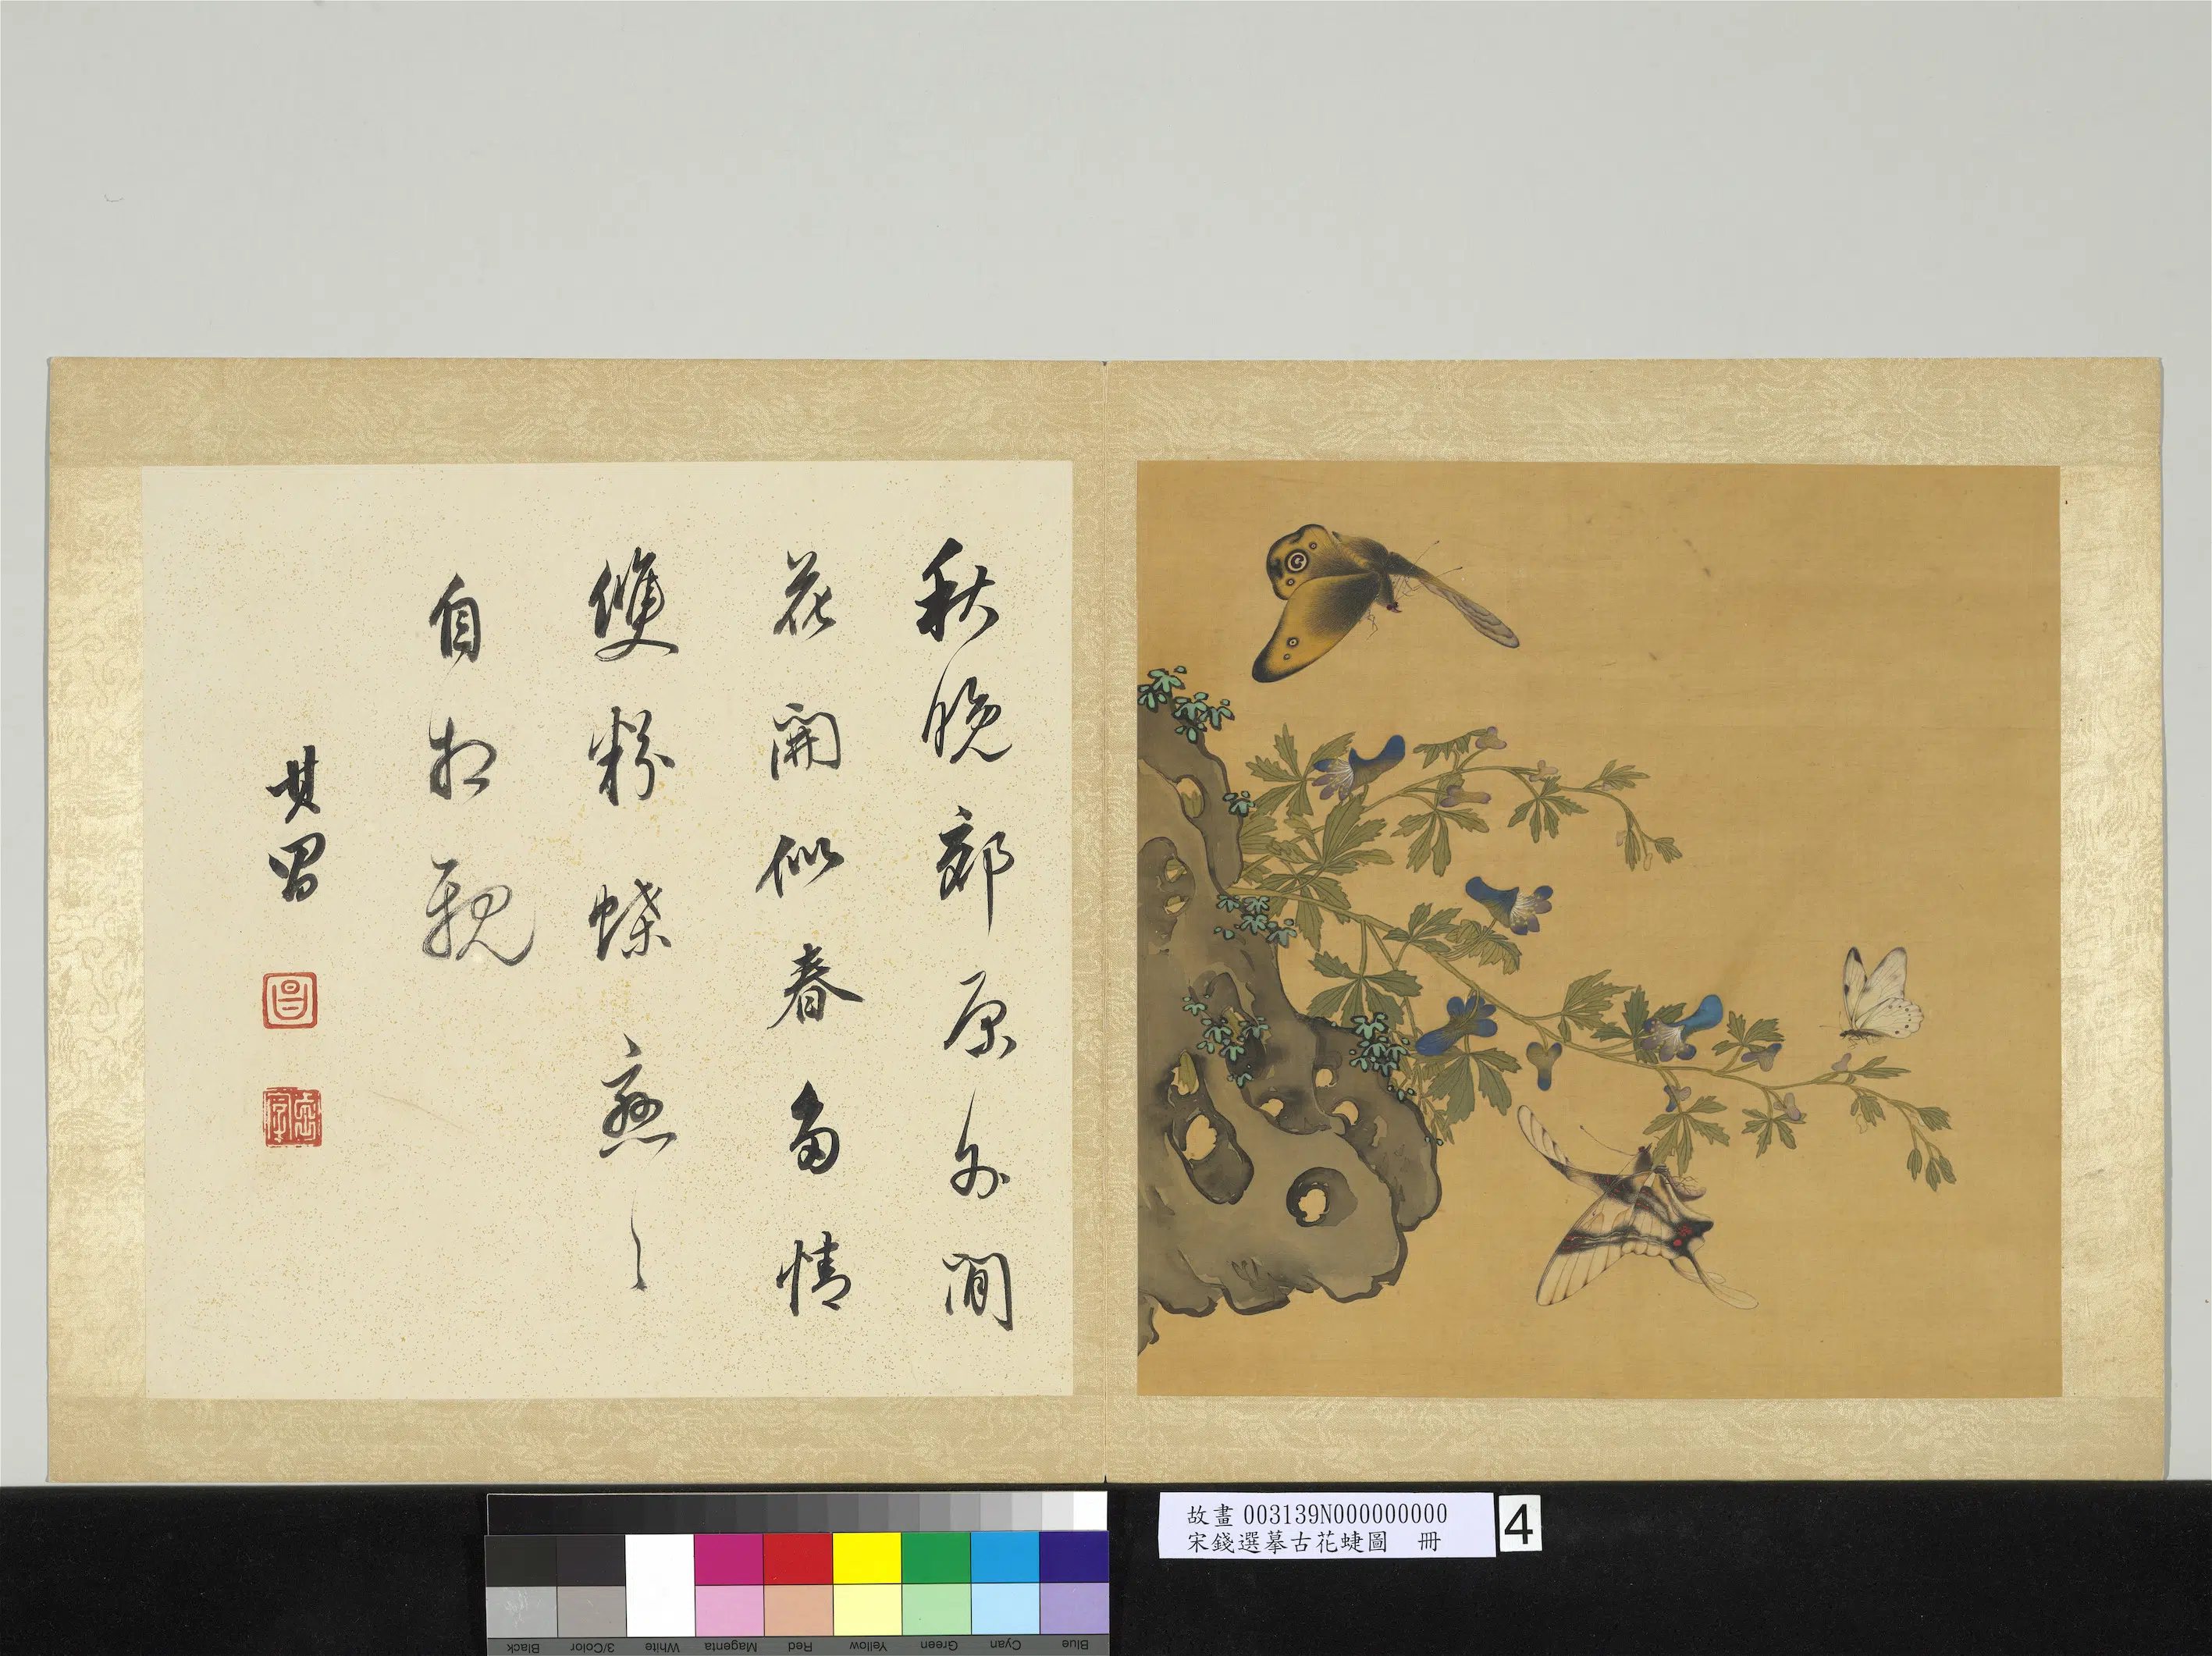 秋晚郊原外閒
花開似春多情
雙粉蝶戀〻
自相親
其昌
昌
故畫 003139N000000000
宋錢選摹古花蜨圖 冊
4
Black
3/Color
White
Magenta
Red
Yellow
Green
Cyan
Blue